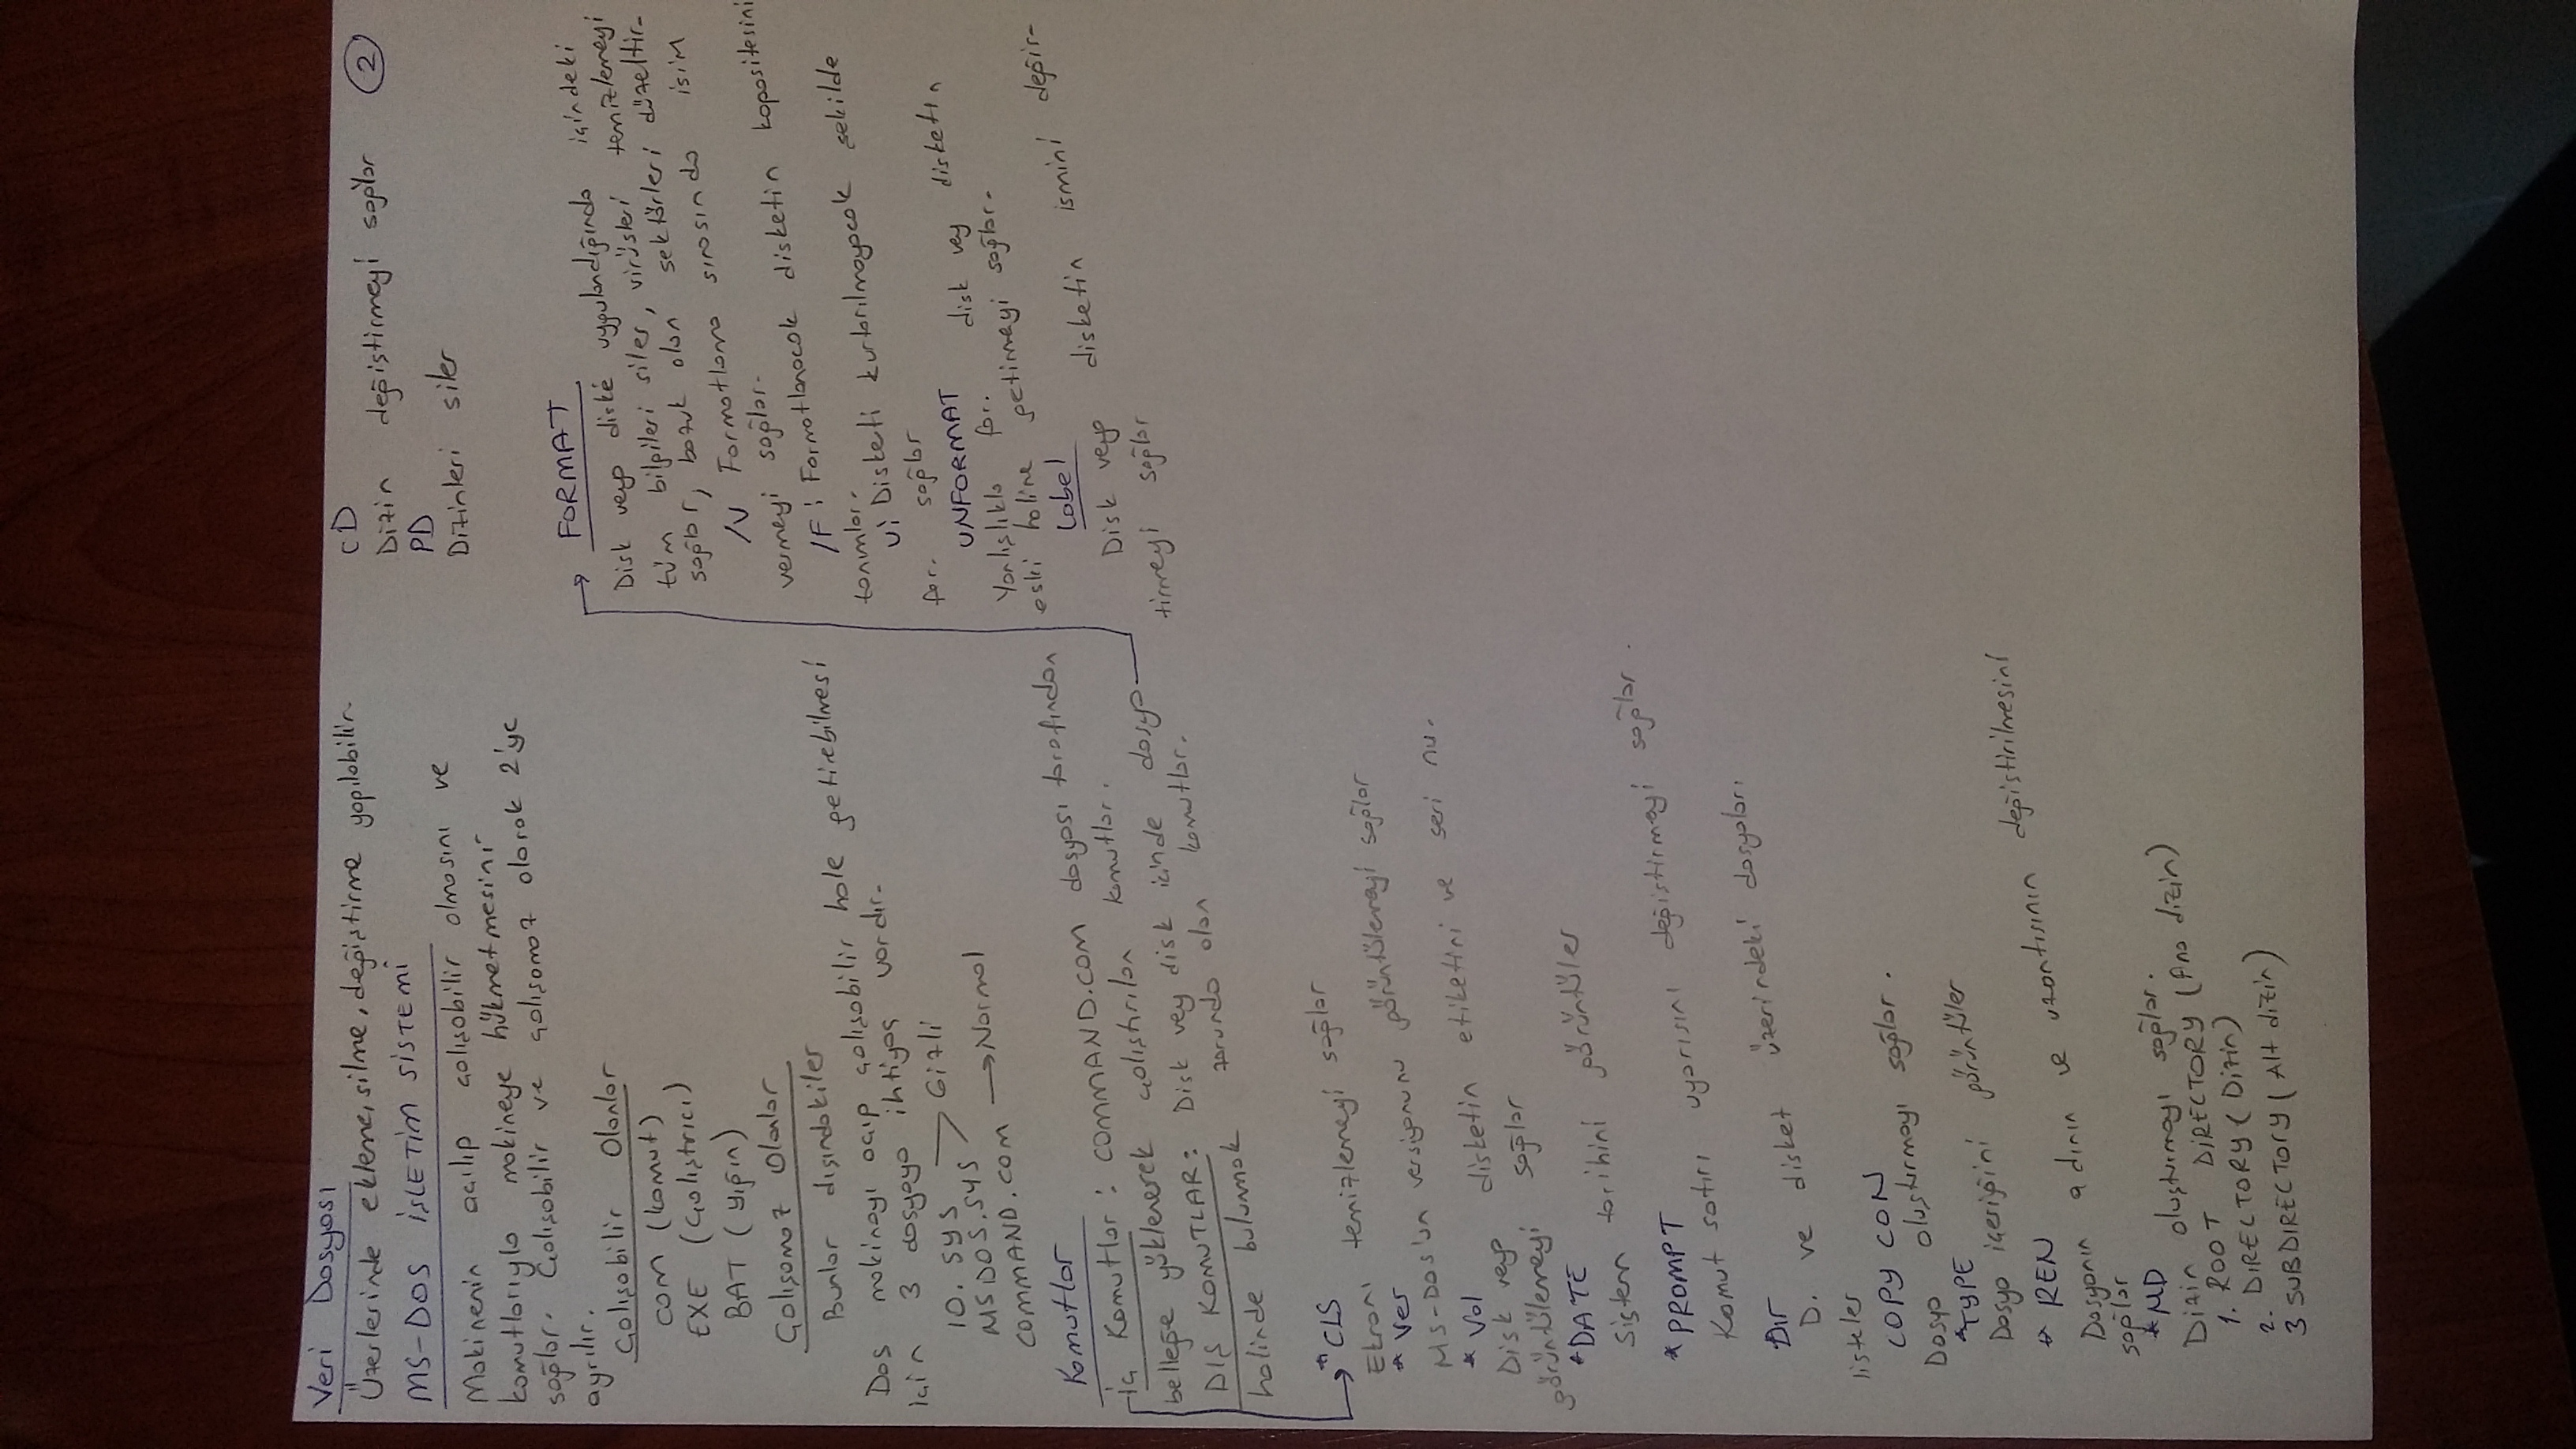 Veri Dosyası
Üzerlerinde ekleme, silme, değiştirme yapılabilir.
MS-DOS İŞLETİM SİSTEMİ
Makinenin açılıp çalışabilir olmasını ve
komutlarıyla makineye hükmetmesini
sağlar. Çalışabilir ve çalışamaz olarak 2'ye
ayrılır.
Çalışabilir Olanlar
COM (komut)
EXE (Çalıştrıcı)
BAT (yığın)
Çalışamaz Olanlar
Bunlar dışındakiler
Dos makinayı açıp çalışabilir hale getirebilmesi
için 3 dosyaya ihtiyaç vardır.
IO.SYS
MSDOS.SYS > Gizli
COMMAND.COM → Normal
Komutlar
İç Komutlar: COMMAND.COM dosyası tarafından
belleğe yüklenerek çalıştırılan komutlar.
DIŞ KOMUTLAR: Disk vey disk içinde dosya
halinde bulunmak zorunda olan komutlar.
→ * CLS
Ekranı temizlemeyi sağlar
* Ver
MS-Dos'un versiyonunu görüntülemeyi sağlar
* Vol
Disk veya disketin etiketini ve seri nu.
görüntülemeyi sağlar
* DATE
Sistem tarihini görüntüler
* PROMPT
Komut satırı uyarısını değiştirmeyi sağlar.
Dır
D. ve disket üzerindeki dosyaları
listeler
COPY CON
Dosya oluşturmayı sağlar.
* TYPE
Dosya içeriğini görüntüler
* REN
Dosyanın adının ve uzantısının değiştirilmesini
sağlar
* MD
Dizin oluşturmayı sağlar.
1. ROOT DİRECTORY (Ana dizin)
2. DIRECTORY (Dizin)
3 SUBDIRECTORY (Alt dizin)
2
CD
Dizin değiştirmeyi sağlar
PD
Dizinleri siler
→ FORMAT
Disk veya diske uygulandığında içindeki
tüm bilgileri siler, virüsleri temizlemeyi
sağlar, bozuk olan sektörleri düzeltir.
/V Formatlama sırasında isim
vermeyi sağlar.
/F: Formatlanacak disketin kapasitesini
tanımlar.
U: Disketi kurtarılmayacak şekilde
for. sağlar
UNFORMAT
Yanlışlıkla for. disk vey disketin
eski haline getirmeyi sağlar.
Label
Disk veya disketin ismini değiş-
tirmeyi sağlar